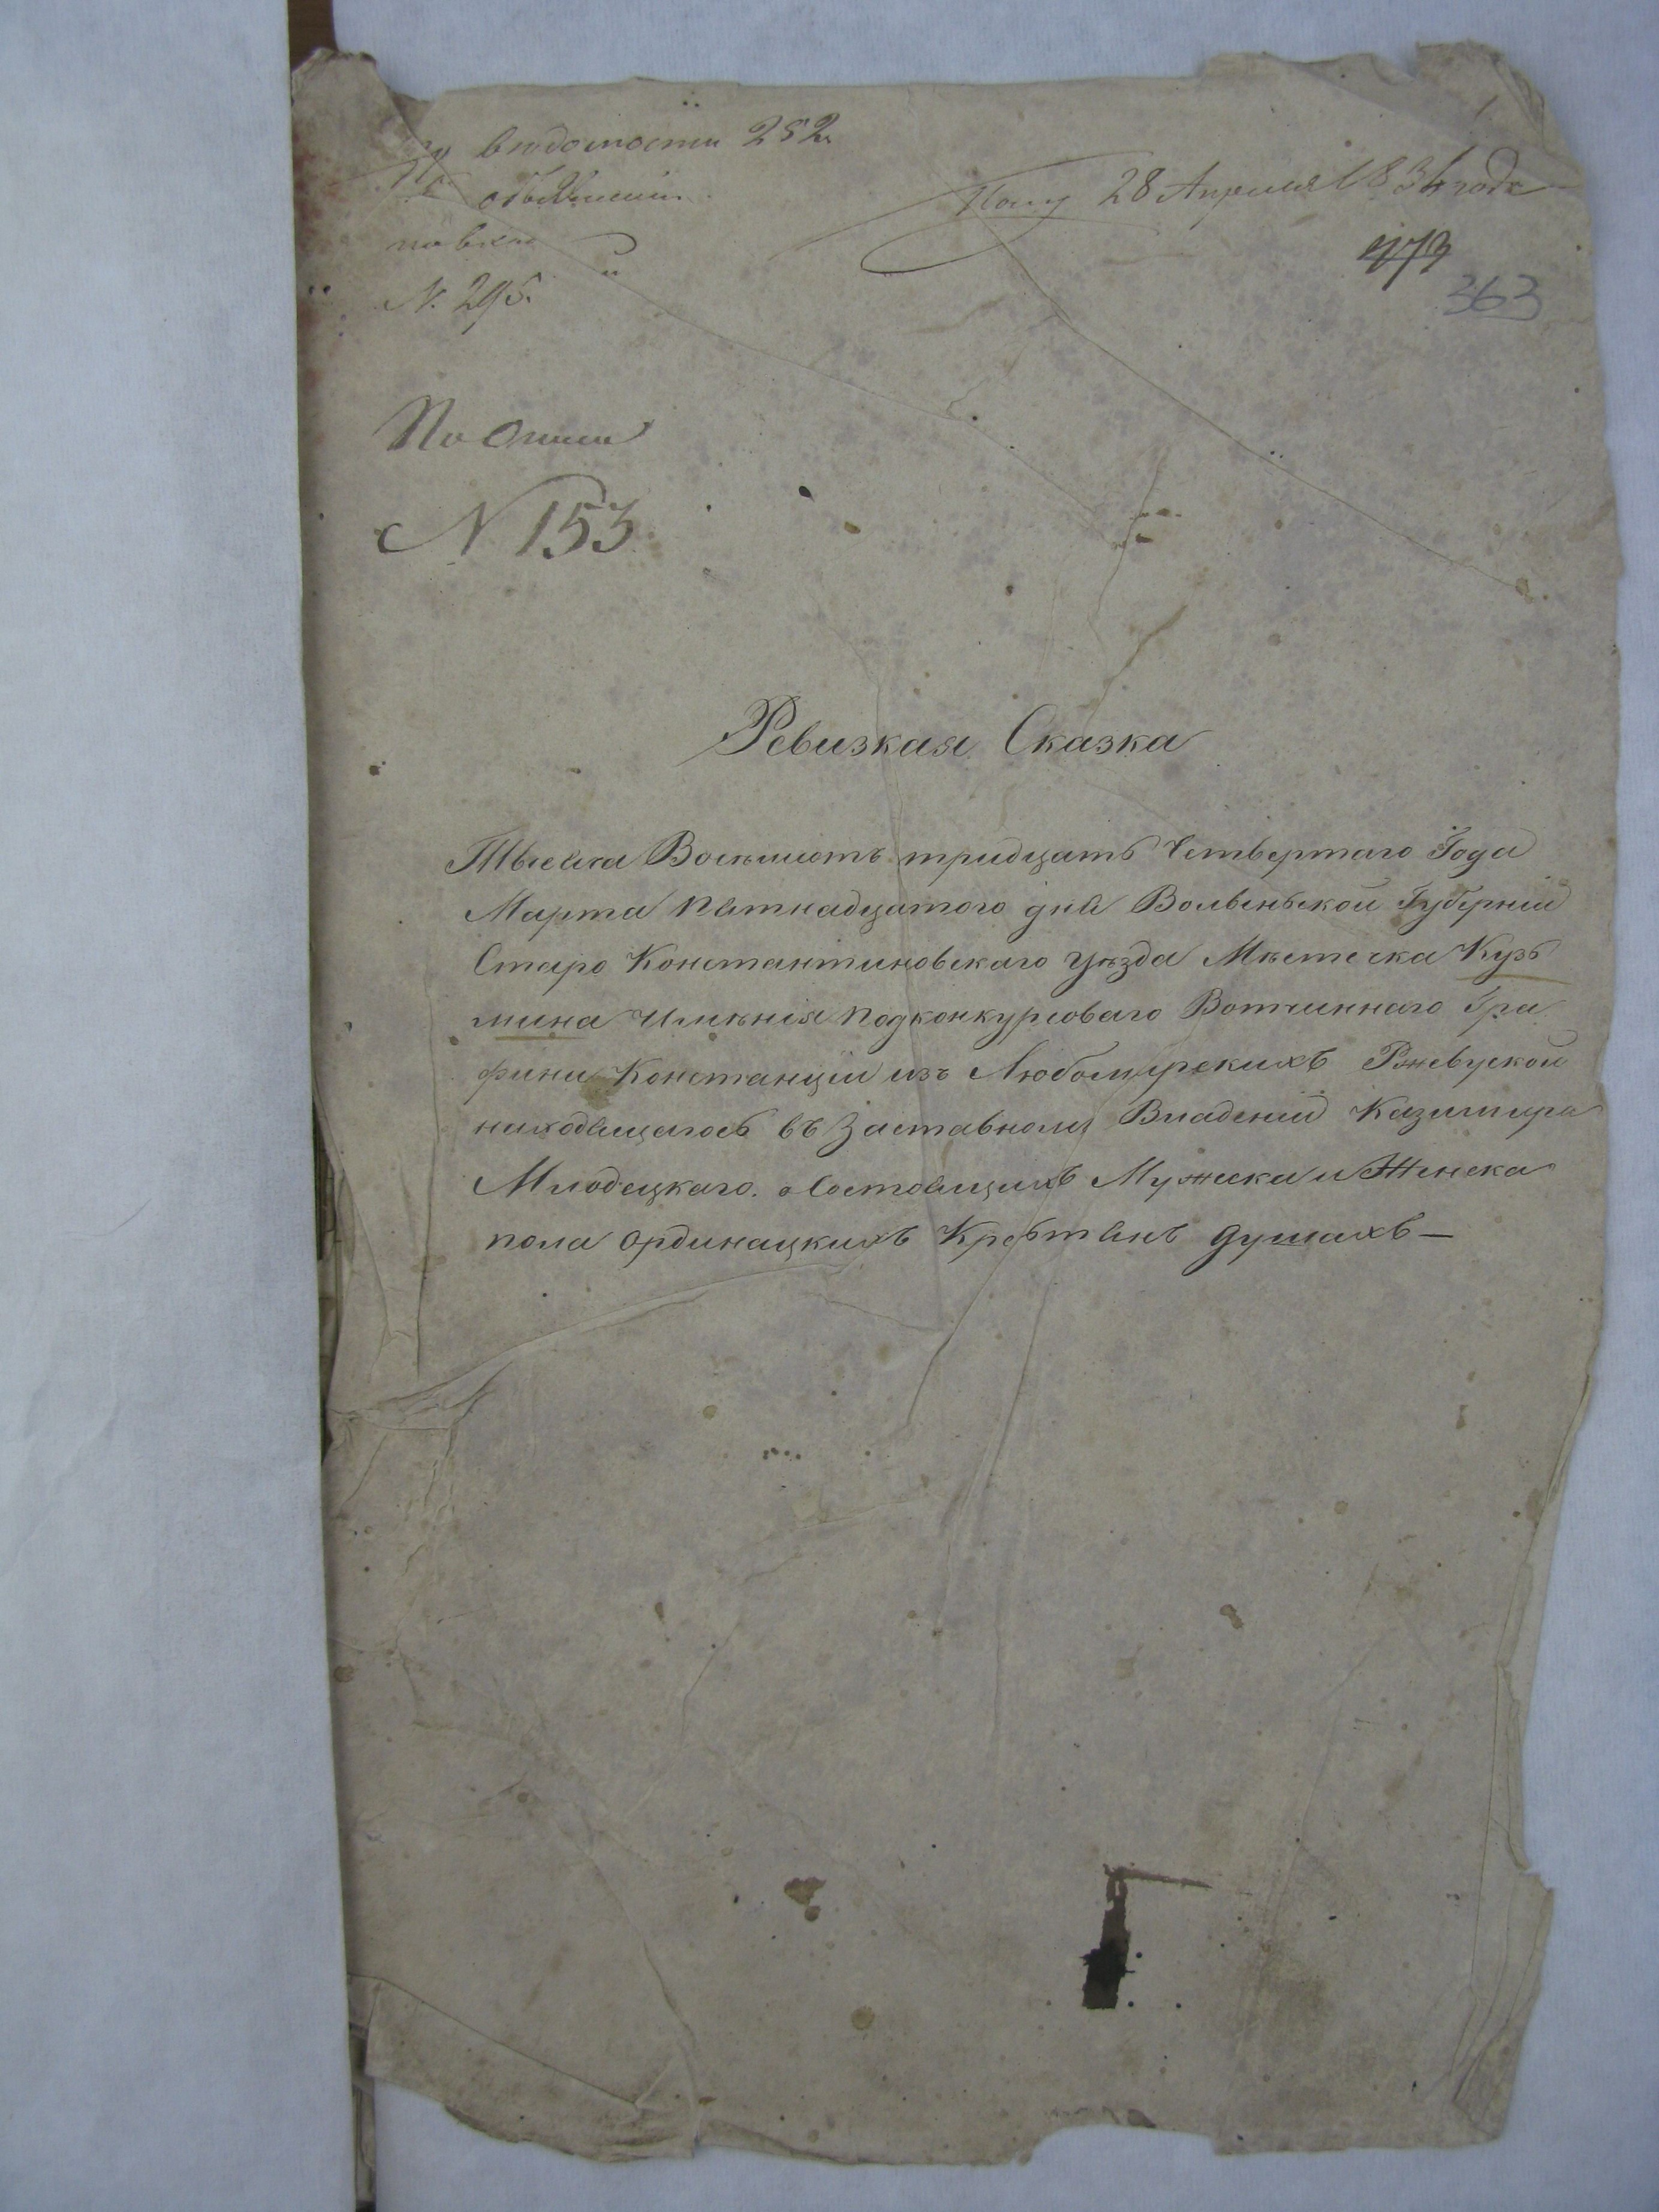 вѣдомости 252
Пол 28 Апрѣля 1834 года
473
363
N. 295.
По Описи
N 153
Ревизкая Сказка
Тысяча Восѣмсотъ тридцать Четвертаго Года
Марта Пятнадцатого дня Волынской Губерніи
Старо Константиновскаго уѣзда Мѣстечка Кузь
мина Имѣнія подконкурсоваго Вотчиннаго Гра
фини Констанціи изъ Любомирскихъ Ржевуской
находящагось въ Заставномъ Владеніи Казимира
Млодецкаго. о Состоящихъ Мужеска и Женска
пола Ординацкихъ Крестянъ душахъ —